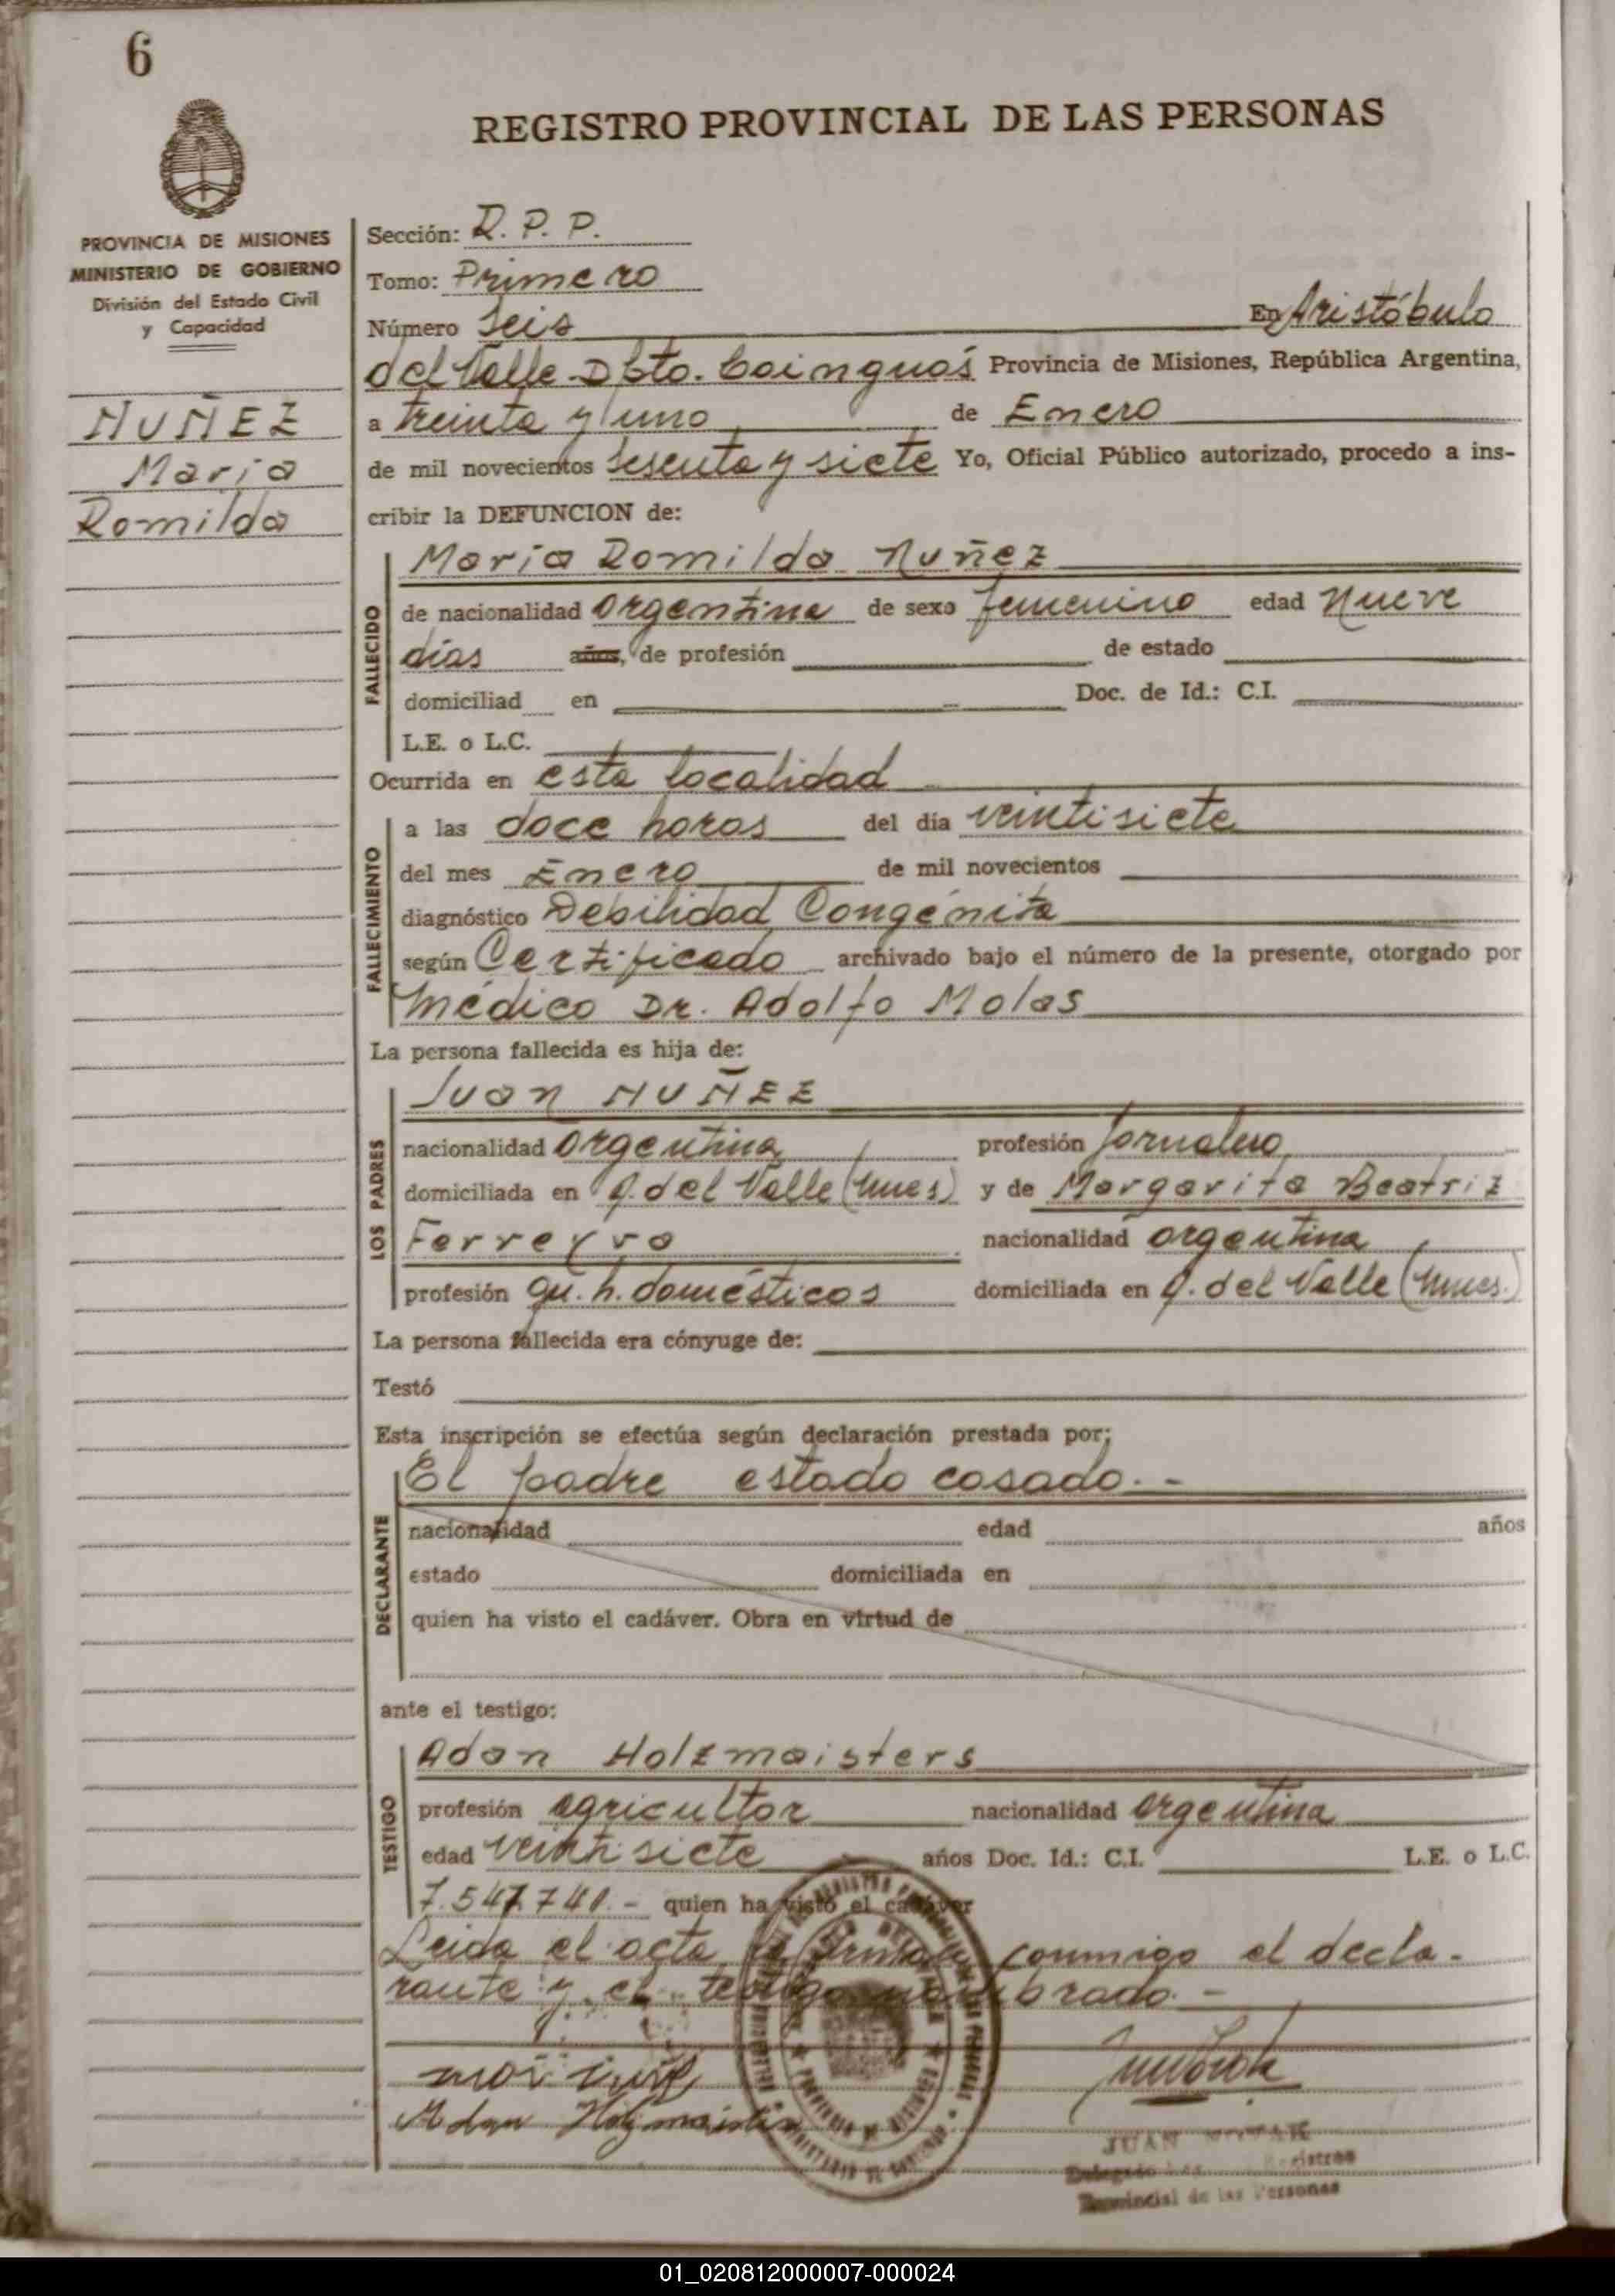 6
REGISTRO PROVINCIAL DE LAS PERSONAS
PROVINCIA DE MISIONES
MINISTERIO DE GOBIERNO
División del Estado Civil
y Capacidad
NUÑEZ
Maria
Romilda
Sección: R. P. P.
Tomo: Primero
Número Seis En Aristóbulo
del Valle Dpto. Cainguas Provincia de Misiones, República Argentina,
a treinta y uno de Enero
de mil novecientos sesenta y siete Yo, Oficial Público autorizado, procedo a ins-
cribir la DEFUNCION de:
FALLECIDO
María Romilda Nuñez
de nacionalidad argentina de sexo femenino edad Nueve
días años, de profesión de estado
domiciliad en Doc. de Id.: C.I.
L.E. o L.C.
Ocurrida en esta localidad
FALLECIMIENTO
a las doce horas del día veintisiete
del mes Enero de mil novecientos
diagnóstico Debilidad Congénita
según Certificado archivado bajo el número de la presente, otorgado por
Médico Dr. Adolfo Molas
La persona fallecida es hija de:
LOS PADRES
Juan NUÑEZ
nacionalidad argentina profesión Jornalero
domiciliada en A. del Valle (Mnes) y de Margarita Beatriz
Ferreyra nacionalidad argentina
profesión qu. h. domésticos domiciliada en A. del Valle (Mnes.)
La persona fallecida era cónyuge de:
Testó
Esta inscripción se efectúa según declaración prestada por;
DECLARANTE
El padre estado casado. -
nacionalidad edad años
estado domiciliada en
quien ha visto el cadáver. Obra en virtud de
ante el testigo:
TESTIGO
Adan Holzmaisters
profesión agricultor nacionalidad argentina
edad veintisiete años Doc. Id.: C.I. L.E. o L.C.
7.547.740.- quien ha visto el cadáver
Leida el acta la firman conmigo el decla-
rante y el testigo nombrado. -
Adan Holzmaister
JUAN
Provincial de las Personas
01_020812000007-000024